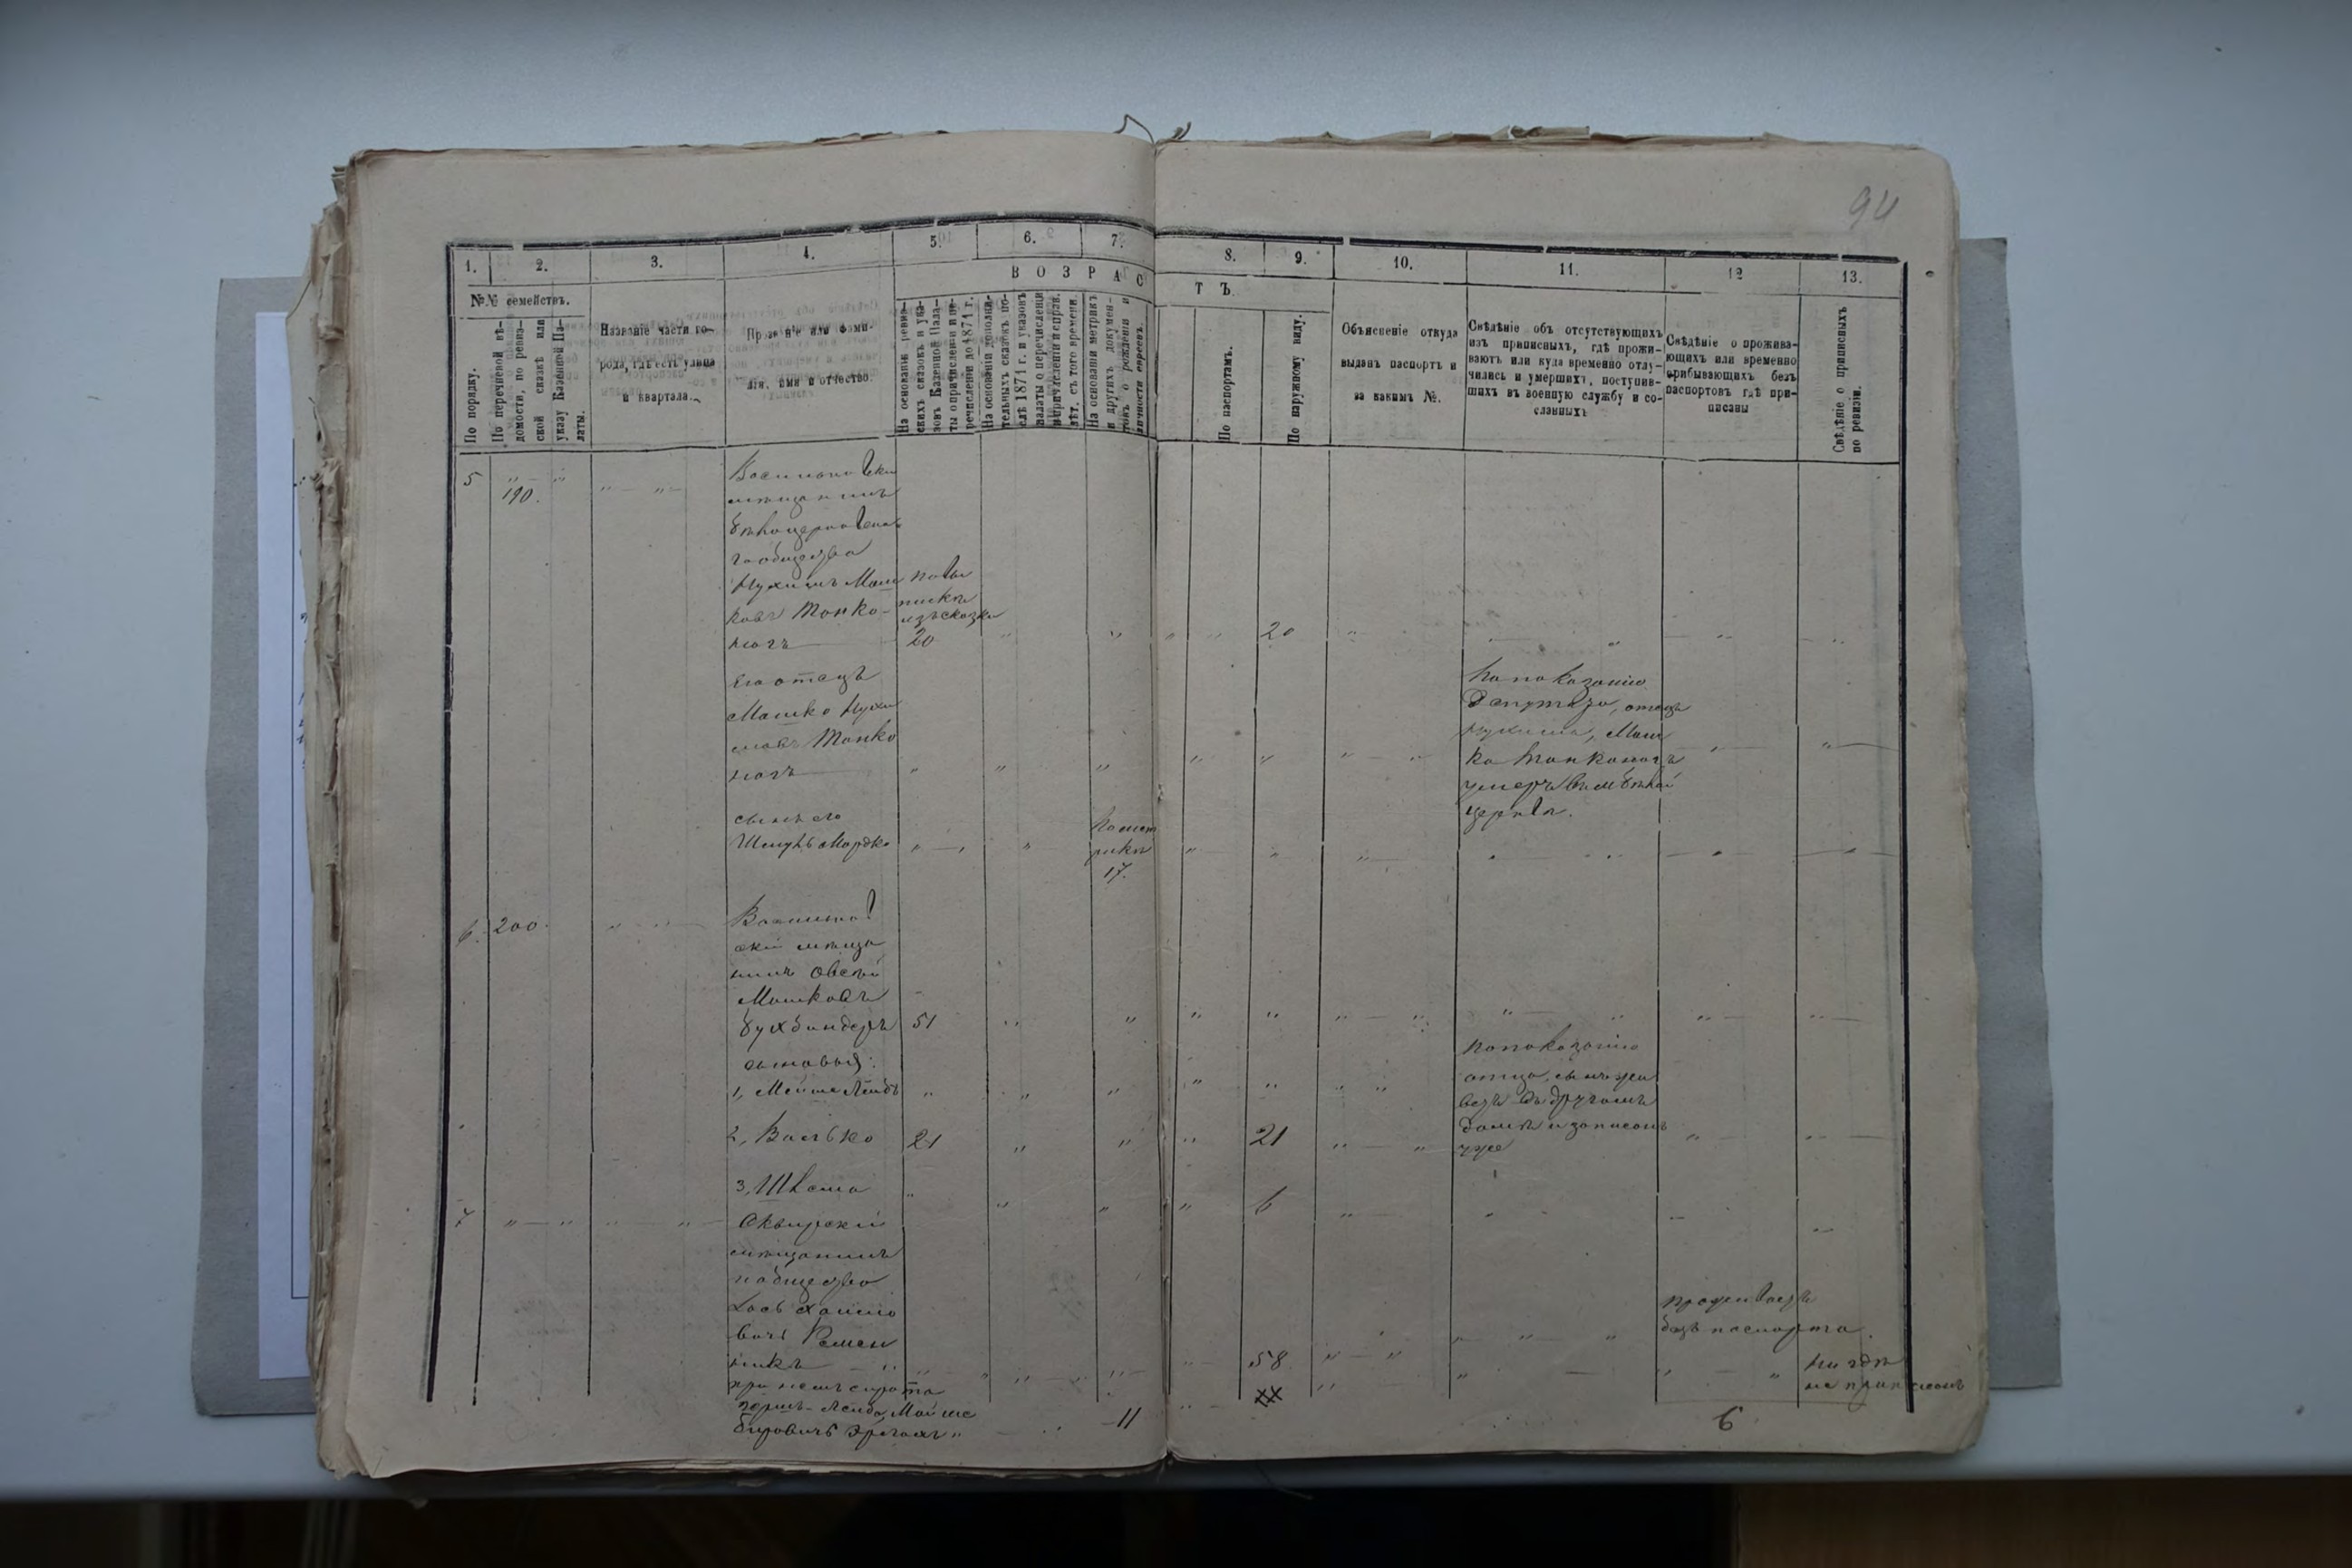 94
1.
2.
3.
4.
5.
6.
7.
8.
9.
10.
11.
12
13.
№№ семействъ.
По порядку.
По перечневой вѣ-
домости, по ревиз-
ской сказкѣ или
указу Казенной Па-
латы.
Названіе части го-
рода, гдѣ есть улица
и квартала.
Прозваніе или фами-
лія, имя и отчество.
ВОЗРАСТЪ.
На основаніи ревиз-
скихъ сказокъ и ука-
зовъ Казенной Пала-
ты о причисленіи и пе-
речисленіи до 1871 г.
На основаніи дополни-
тельныхъ сказокъ по-
слѣ 1871 г. и указовъ
палаты о перечисленіи
и причисленіи и справ.
лѣт. съ того времени.
На основаніи метрикъ
и другихъ докумен-
товъ о рожденіи и
личности евреевъ.
По паспортамъ.
По наружному виду.
Объясненіе откуда
выданъ паспортъ и
за какимъ №.
Свѣдѣніе объ отсутствующихъ
изъ приписныхъ, гдѣ прожи-
ваютъ или куда временно отлу-
чились и умершихъ, поступив-
шихъ въ военную службу и со-
сланныхъ
Свѣдѣніе о прожива-
ющихъ или временно
прибывающихъ безъ
паспортовъ гдѣ при-
писаны
Свѣдѣніе о приписныхъ
по ревизіи.
5
190.
Васильковскій
мѣщанинъ
бѣлоцерковска
го общества
Нухимъ Мош
ковъ Тонко-
ногъ
по вы
пискѣ
изъ сказки
20
20
Его отецъ
Мошко Нухи
мовъ Тонко
ногъ
По показанію
Депутата, отецъ
Нухима, Мош
ко Тонконогъ
умеръ въ м. Бѣлой
церкви.
сынъ его
Шмуль Мордко
По мет
рикѣ
17.
6. 200.
Васильков
скій мѣща
нинъ Овсѣй
Мошковъ
Бухбиндеръ 51
сыновья:
1, Мойше Лейбъ
По показанію
отца, сынъ жи
ветъ въ другомъ
домѣ и записанъ
уже
2, Волько 21
21
3, Шлема
6
7
Сквирскій
мѣщанинъ
по обществу
Лось Хаимо
вичъ Ремен
никъ
58
проживаетъ
безъ паспорта.
при немъ сирота
Лейба Мойше
Беровичъ
11
XX
ни гдѣ
не приписанъ
6